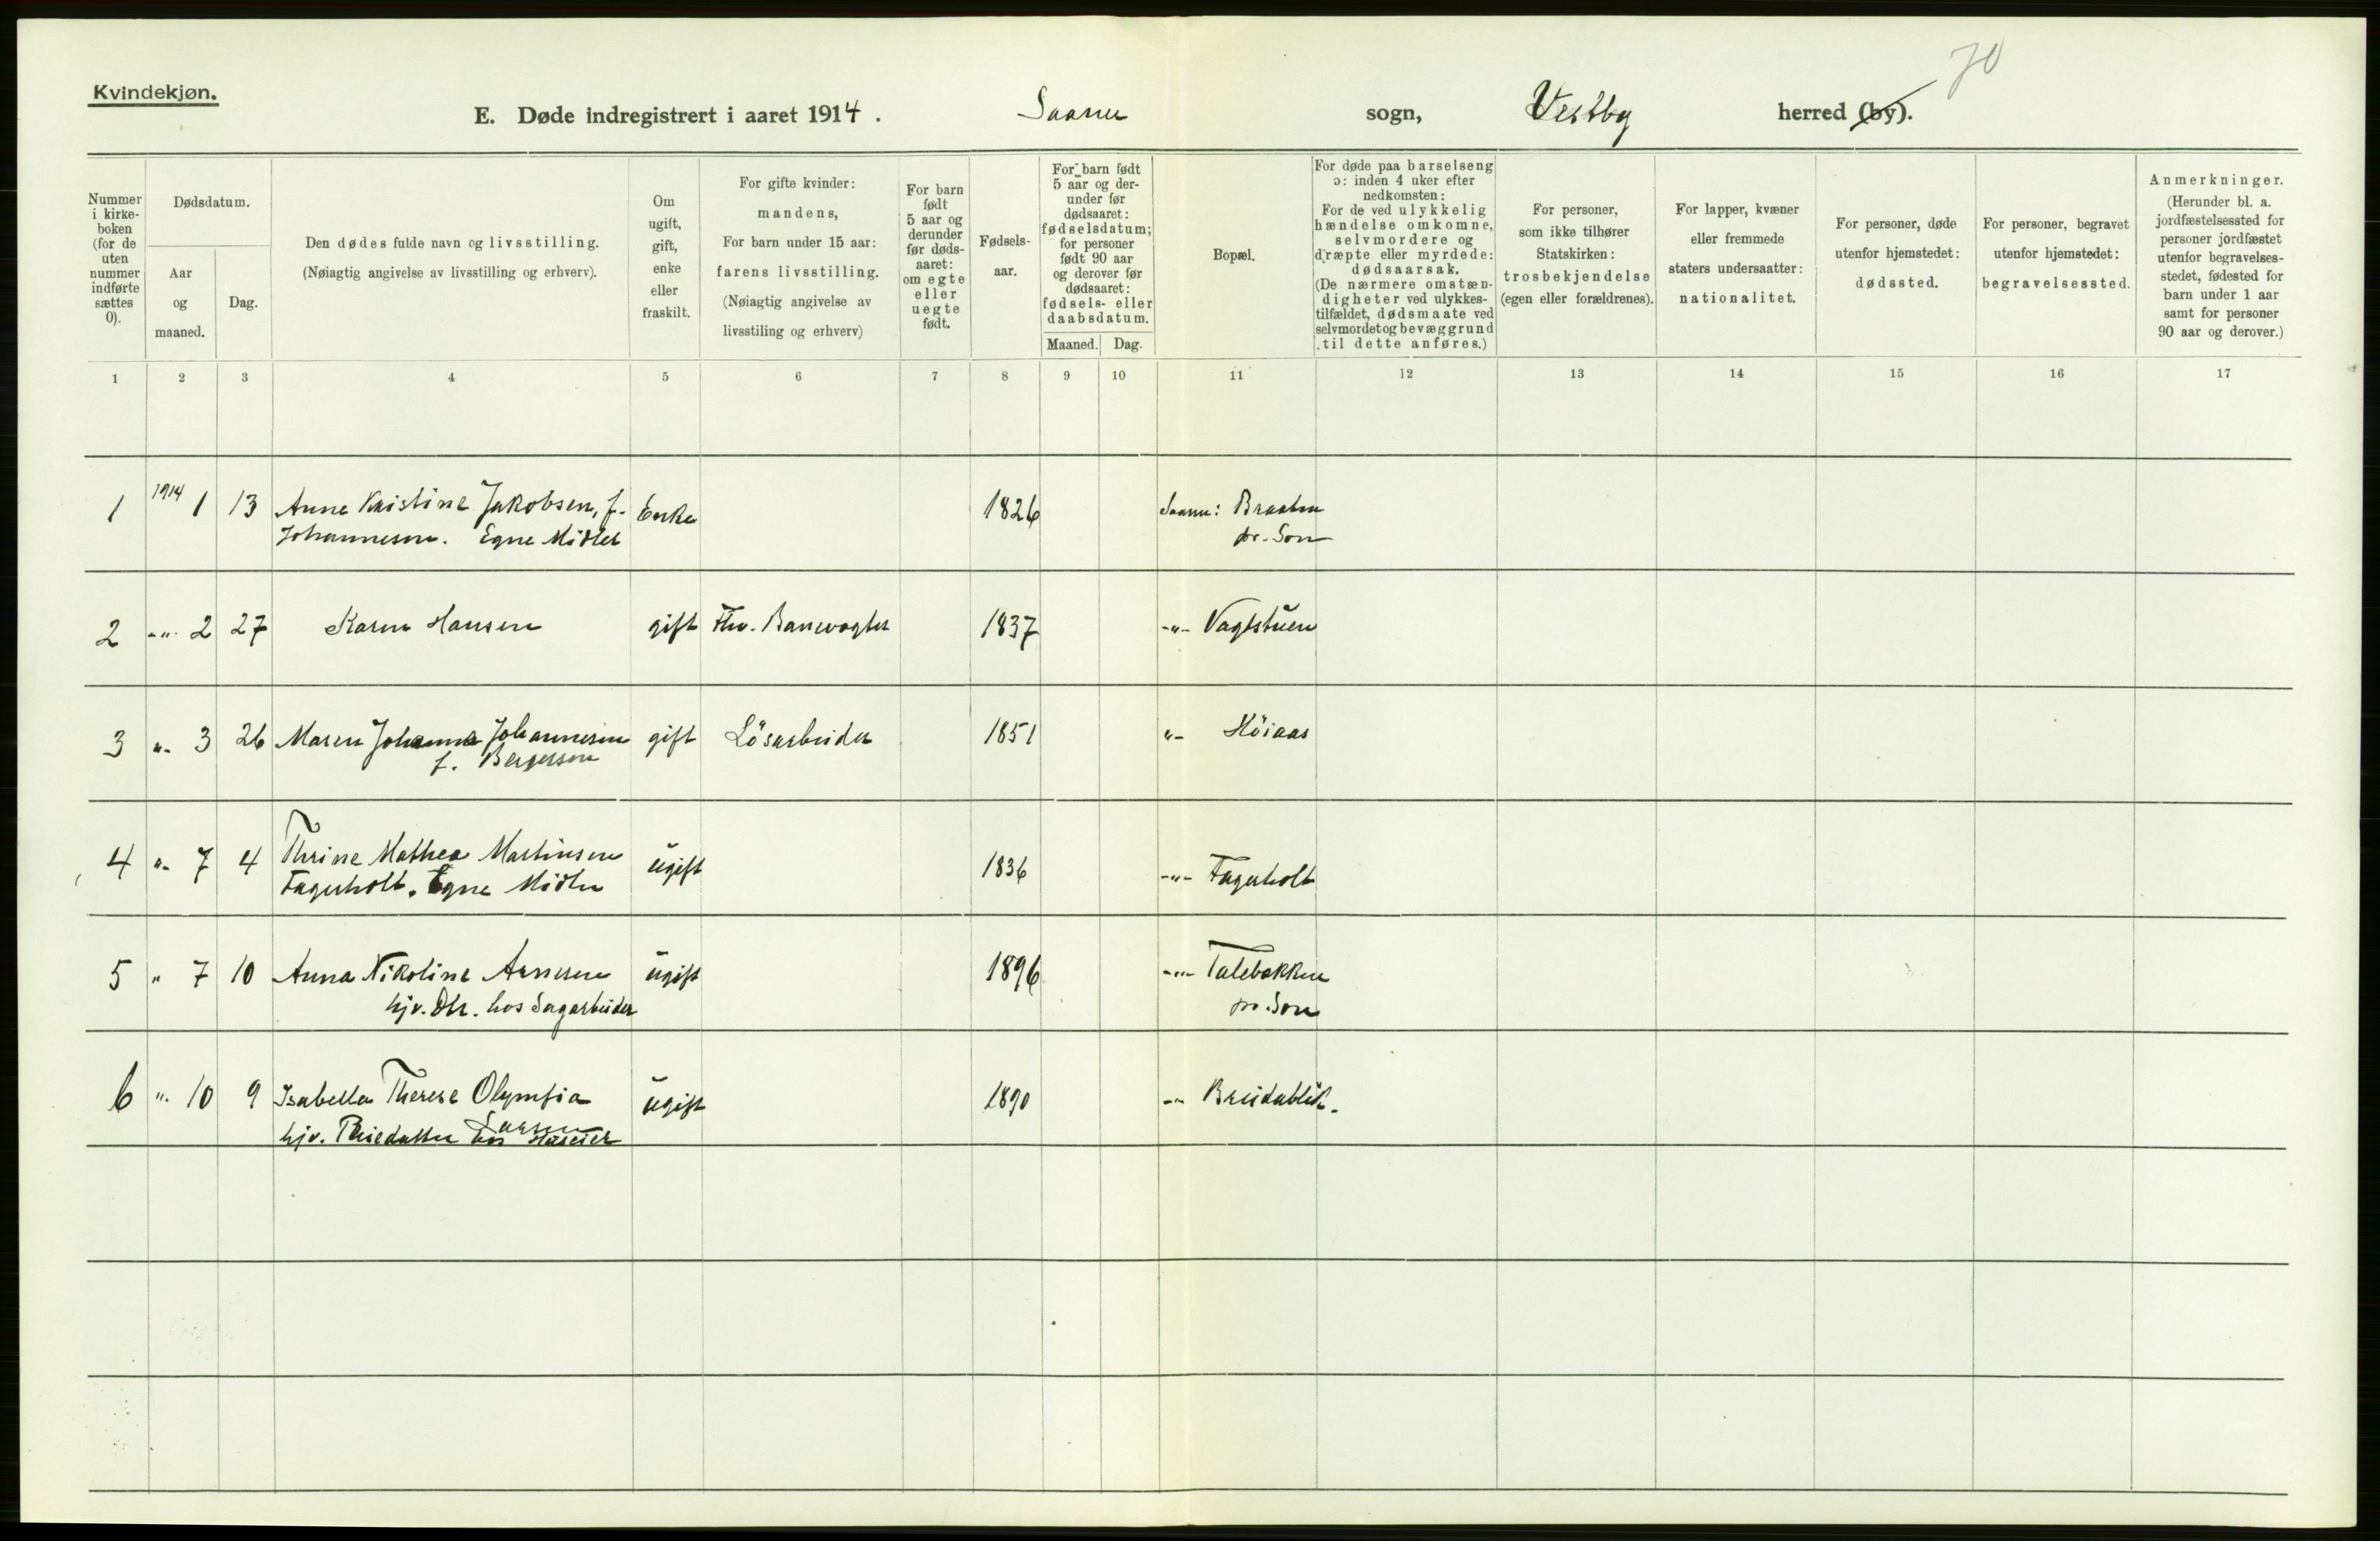 70
Kvindekjøn.
E. Døde indregistrert i aaret 1914. Saaner sogn, Vestby herred (by).
Nummer
i kirke-
boken
(for de
uten
nummer
indførte
sættes
0).
Dødsdatum.
Aar
og
maaned.
Dag.
Den dødes fulde navn og livsstilling.
(Nøiagtig angivelse av livsstilling og erhverv).
Om
ugift,
gift,
enke
eller
fraskilt.
For gifte kvinder:
mandens,
For barn under 15 aar:
farens livsstilling.
(Nøiagtig angivelse av
livsstiling og erhverv)
For barn
født
5 aar og
derunder
før døds-
aaret:
om egte
eller
uegte
født.
Fødsels-
aar.
For barn født
5 aar og der-
under før
dødsaaret:
fødselsdatum;
for personer
født 90 aar
og derover før
dødsaaret:
fødsels- eller
daabsdatum.
Maaned. Dag.
Bopæl.
For døde paa barselseng
ɔ: inden 4 uker efter
nedkomsten:
For de ved ulykkelig
hændelse omkomne,
selvmordere og
dræpte eller myrdede:
dødsaarsak.
(De nærmere omstæn-
digheter ved ulykkes-
tilfældet, dødsmaate ved
selvmordet og bevæggrund
til dette anføres.)
For personer,
som ikke tilhører
Statskirken:
trosbekjendelse
(egen eller forældrenes).
For lapper, kvæner
eller fremmede
staters undersaatter:
nationalitet.
For personer, døde
utenfor hjemstedet:
dødssted.
For personer, begravet
utenfor hjemstedet:
begravelsessted.
Anmerkninger.
(Herunder bl. a.
jordfæstelsessted for
personer jordfæstet
utenfor begravelses-
stedet, fødested for
barn under 1 aar
samt for personer
90 aar og derover.)
1 2 3 4 5 6 7 8 9 10 11 12 13 14 15 16 17
1 1914 1 13 Anne Kristine Jakobsen, f. Enke 1826 Saaner: Braaten
Johannesen. Egne Midler pr. Son
2 -"- 2 27 Karen Hansen gift Fhv. Banevogter 1837 -"- Vagtstuen
3 "- 3 26 Maren Johanne Johannesen gift Lösarbeider 1851 "- Höiaas
f. Bergersen
4 "- 7 4 Thrine Mathea Martinsen ugift 1836 -"- Fagerholt
Fagerholt. Egne Midler
5 " 7 10 Anna Nikoline Arnesen ugift 1896 -"- Talebakken
hjv. Dtr. hos Sagarbeider pr. Son
6 "- 10 9 Isabella Therese Olymfia ugift 1890 -"- Breidablik.
Larsen
hjv. Pleiedatter hos Huseier